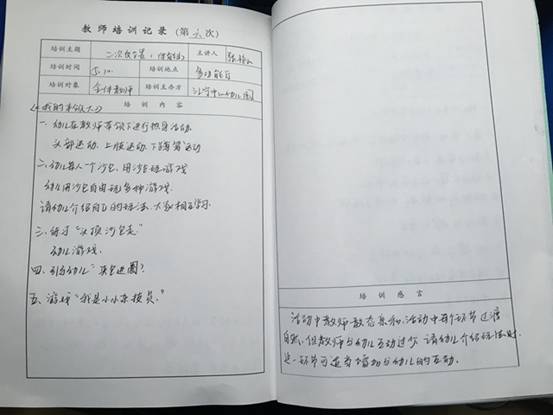 教师培训记录(第六次)
培训主题 二次反复 主讲人 张
培训时间 5.10 培训地点 多功能厅
培训对象 全体教师 培训主办方 幼儿园
培训内容
《我的本领大》
一、幼儿在教师带领下进行热身活动.
头部运动、上肢运动、下蹲等运动
二、幼儿每人一个沙包,用沙包玩游戏
幼儿用沙包自由玩多种游戏.
请幼儿介绍自己的玩法,大家相互学习.
三、练习“头顶沙包走”
幼儿游戏.
四、引导幼儿“夹包进圈”
五、游戏“我是小小杂技员.”
培训感言
活动中教师教态亲和,活动中每个环节过渡
自然,但教师与幼儿互动过少,请幼儿介绍玩法时
这一环节可适当增加与幼儿的互动.